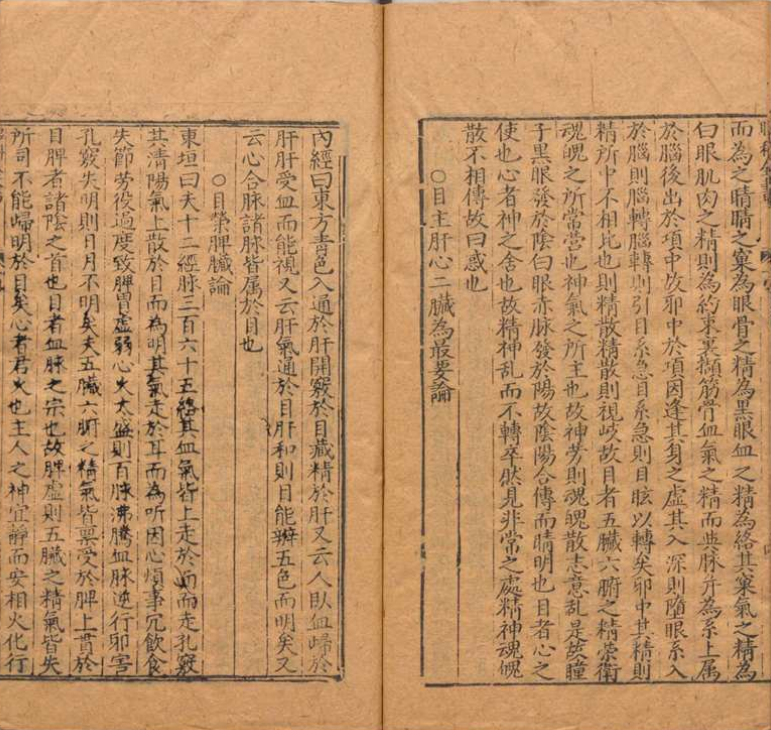 而為之睛睛之窠為眼骨之精為黒眼血之精為絡其窠氣之精為
白眼肌肉之精則為約束裏擷筋骨血氣之精而與脉并為系上属
於腦後出於項中故邪中於項因逢其身之虚其入深則隨眼系入
於腦則腦轉腦轉則引目系急目系急則目眩以轉矣邪中其精則
精所中不相比也則精散精散則視岐故目者五臓六腑之精榮衛
魂魄之所常营也神氣之所主也故神劳則魂魄散志意乱是故瞳
子黒眼發於陰白眼赤脉發於陽故陰陽合傳而睛明也目者心之
使也心者神之舍也故精神乱而不轉卒然見非常之處精神魂魄
散不相傳故曰惑也
○目主肝心二臓為最要論
內經曰東方青色入通於肝開竅於目藏精於肝又云人臥血歸於
肝肝受血而能視又云肝氣通於目肝和則目能辨五色而明矣又
云心合脉諸脉皆属於目也
○目榮脾臓論
東垣曰夫十二經脉三百六十五絡其血氣皆上走於面而走孔竅
其清陽氣上散於目而為明其氣走於耳而為听因心煩事冗飲食
失節劳役過度致脾胃虚弱心火太盛則百脉沸騰血脉逆行邪害
孔竅失明則日月不明矣夫五臓六腑之精氣皆禀受於脾上貫於
目脾者諸陰之首也目者血脉之宗也故脾虚則五臓之精氣皆失
所司不能歸明於目矣心者君火也主人之神宜静而安相火化行